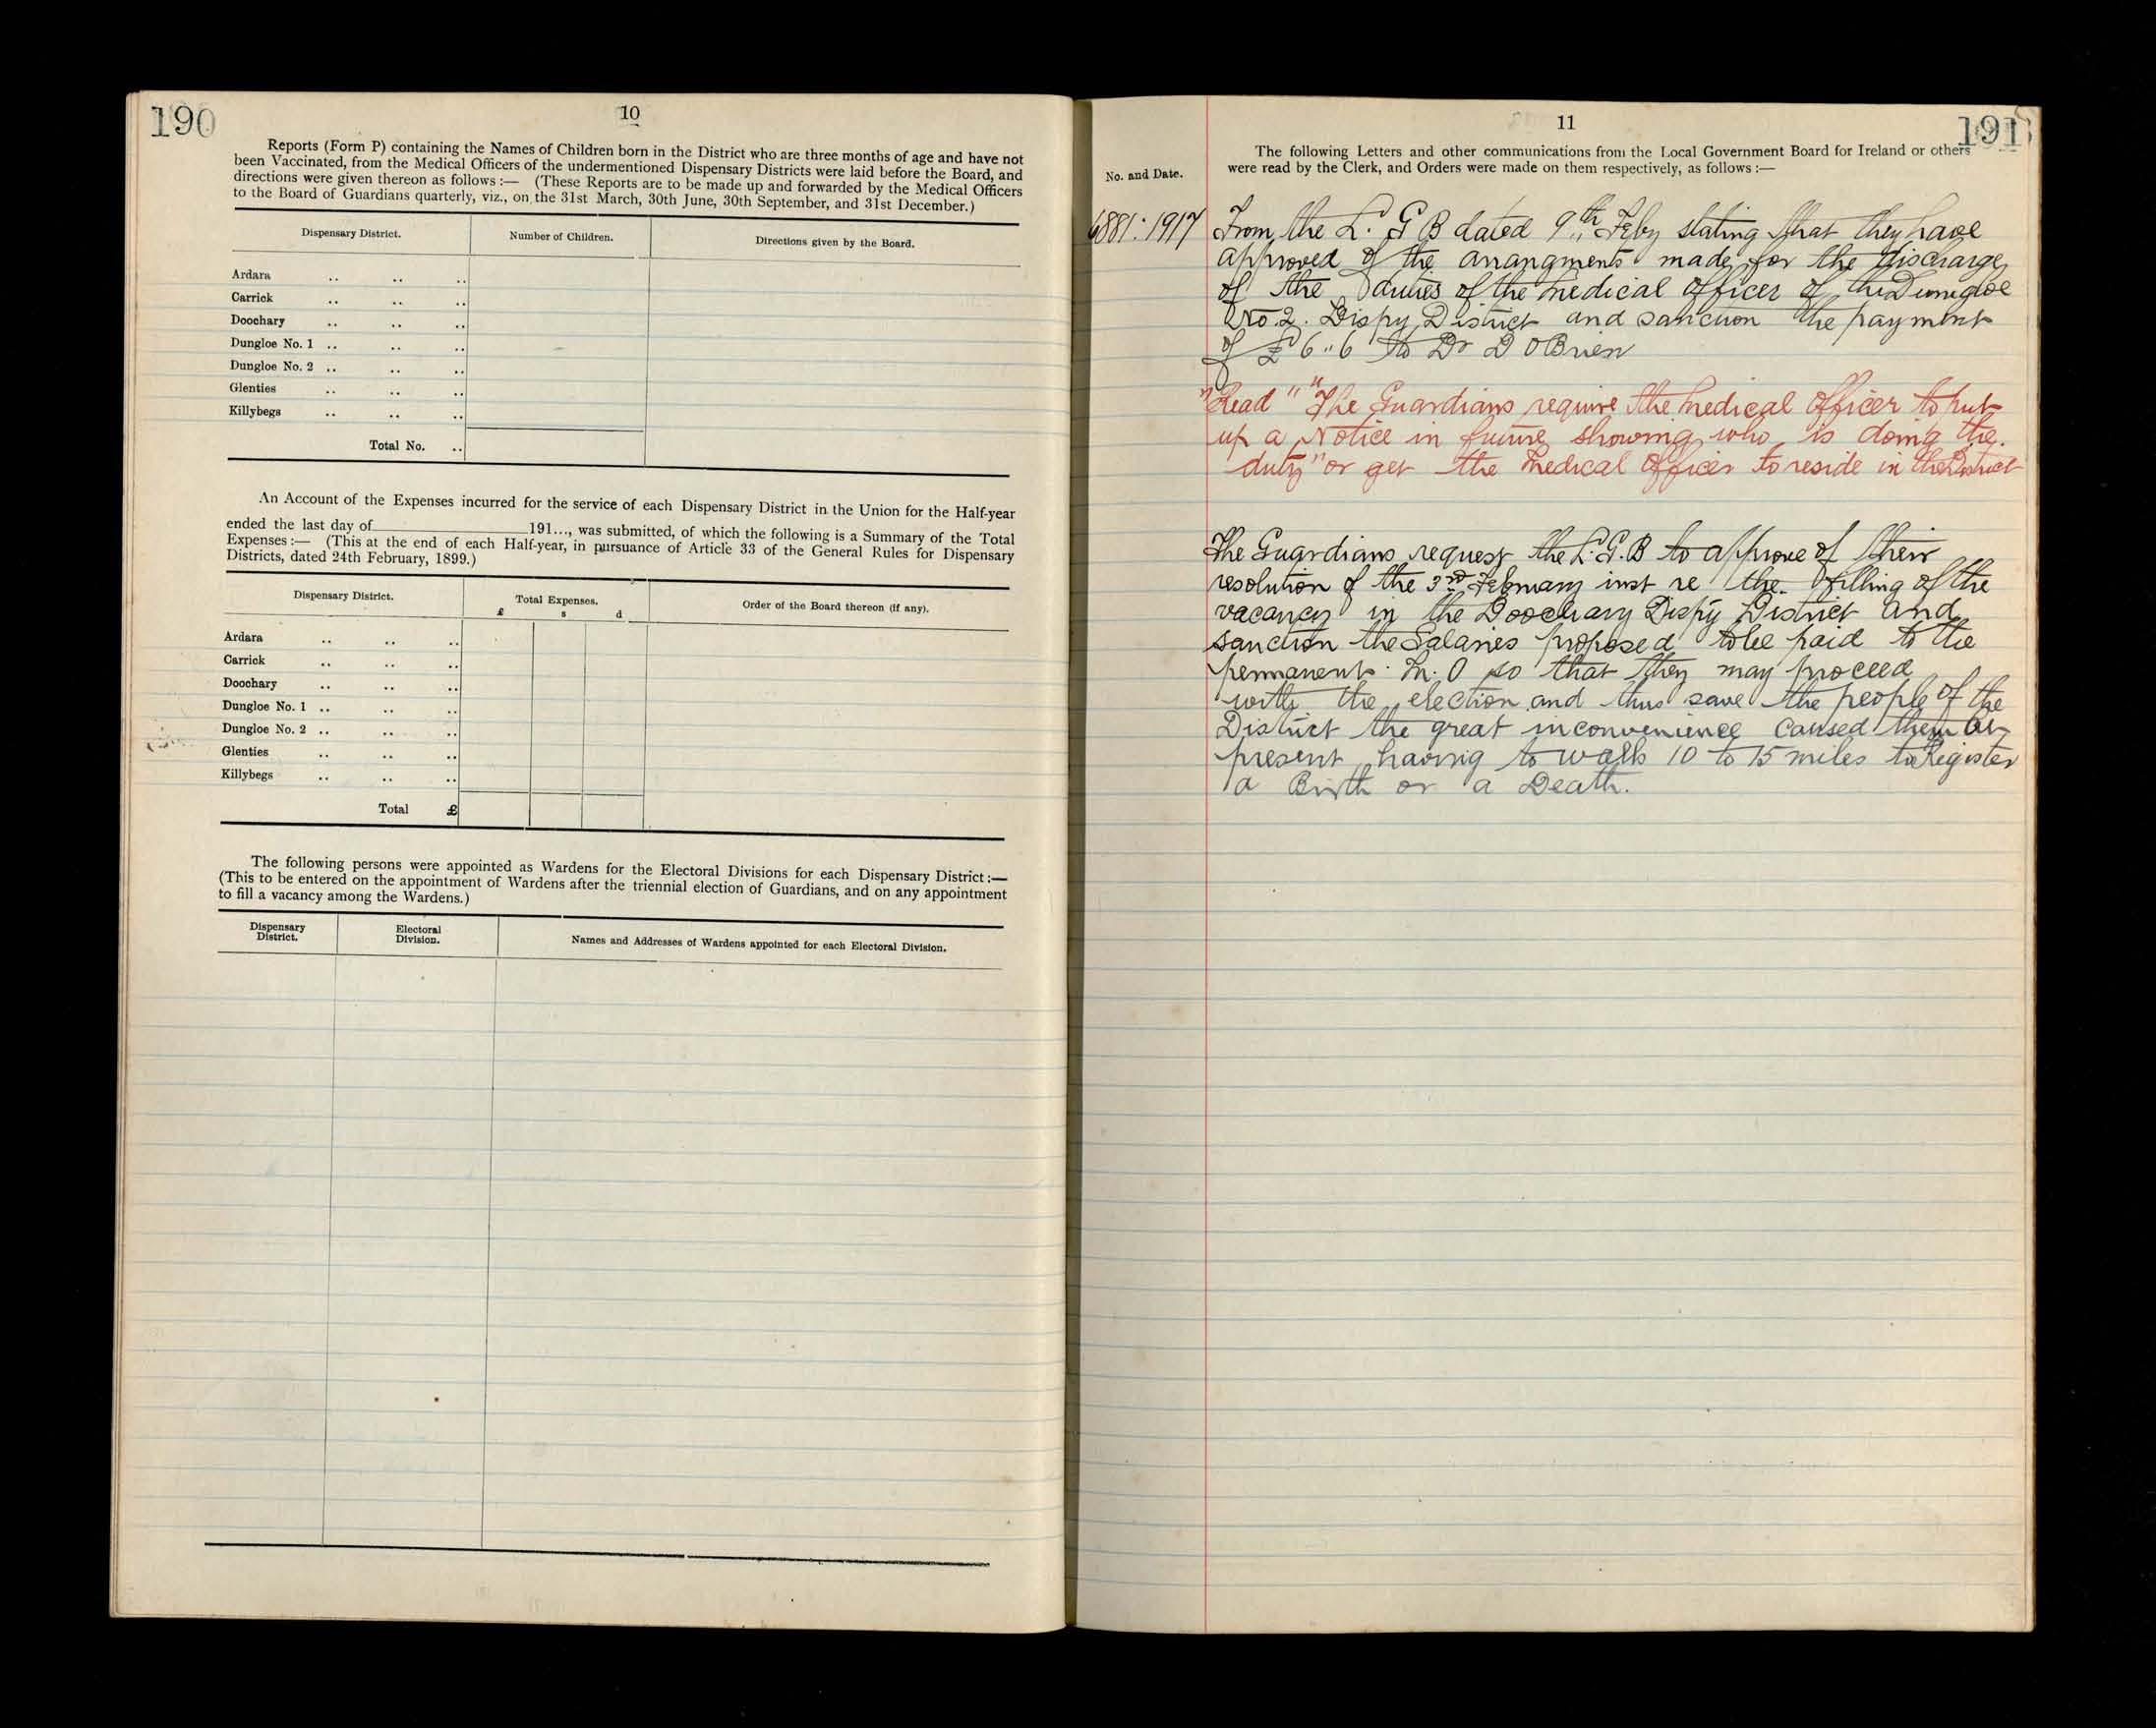 190
10
Reports (Form P) containing the Names of Children born in the District who are three months of age and have not
been Vaccinated, from the Medical Officers of the undermentioned Dispensary Districts were laid before the Board, and
directions were given thereon as follows :— (These Reports are to be made up and forwarded by the Medical Officers
to the Board of Guardians quarterly, viz., on the 31st March, 30th June, 30th September, and 31st December.)
Dispensary District. Number of Children. Directions given by the Board.
Ardara .. .. ..
Carrick .. .. ..
Doochary .. .. ..
Dungloe No. 1 .. .. ..
Dungloe No. 2 .. .. ..
Glenties .. .. ..
Killybegs .. .. ..
Total No. ..
An Account of the Expenses incurred for the service of each Dispensary District in the Union for the Half-year
ended the last day of 191..., was submitted, of which the following is a Summary of the Total
Expenses :— (This at the end of each Half-year, in pursuance of Article 33 of the General Rules for Dispensary
Districts, dated 24th February, 1899.)
Dispensary District. Total Expenses. Order of the Board thereon (if any).
£ s d
Ardara .. .. ..
Carrick .. .. ..
Doochary .. .. ..
Dungloe No. 1 .. .. ..
Dungloe No. 2 .. .. ..
Glenties .. .. ..
Killybegs .. .. ..
Total £
The following persons were appointed as Wardens for the Electoral Divisions for each Dispensary District :—
(This to be entered on the appointment of Wardens after the triennial election of Guardians, and on any appointment
to fill a vacancy among the Wardens.)
Dispensary District. Electoral Division. Names and Addresses of Wardens appointed for each Electoral Division.
11
191
The following Letters and other communications from the Local Government Board for Ireland or others
were read by the Clerk, and Orders were made on them respectively, as follows :—
No. and Date.
6881: 1917 From the L. G B dated 9th Feby stating that they have
approved of the arrangments made for the discharge
of the duties of the medical officer of the Dungloe
No. 2. Dispy District and sanction the payment
of £6"6 to Dr D O Brien
"Read" "The Guardians require the medical officer to put
up a Notice in future showing who is doing the
duty" or get the medical officer to reside in the District
The Guardians request the L.G.B to approve of their
resolution of the 3rd February inst re the filling of the
vacancy in the Doochary Dispy District and
sanction the Salaries proposed to be paid to the
permanent M. O so that they may proceed
with the election and thus save the people of the
District the great inconvenience caused them at
present having to walk 10 to 15 miles to Register
a Birth or a Death.